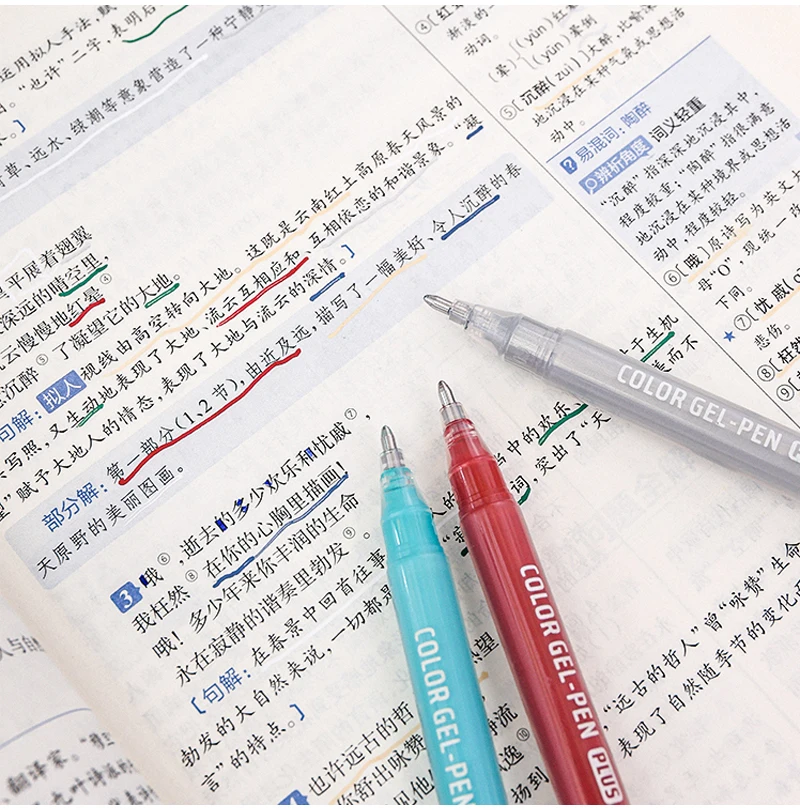 运用拟人手法,赋
。“也许”二字,表明后
草、远水、绿潮等意象营造了一种宁静
平展着翅翼
深远的晴空里,
云慢慢地红晕④
沉醉⑤了凝望它的大地。
句解:拟人 视线由高空转向大地。这既是云南红土高原春天风景的
写照,又生动地表现了大地、流云互相应和、互相依恋的和谐景象。“凝
望”赋予大地人的情态,表现了大地与流云的深情。】
部分解:第一部分(1、2节),由近及远,描写了一幅美好、令人沉醉的春
天原野的美丽图画。
3 哦⑥,逝去的多少欢乐和忧戚⑦,
我枉然⑧在你的心胸里描画!
哦!多少年来你丰润的生命
永在寂静的谐奏里勃发⑨。
【句解:在春景中回首往事
勃发的大自然来说,一切都是
言”的特点。】
也许远古的哲
你舒出咏赞
于生机
美而不
当中的欢乐、
词,突出了“天
远古的哲人”曾“咏赞”生命
表现了自然随季节的变化而
④(红
渐淡的
动词。
晕 (yūn)
(yùn)晕倒
⑤(沉醉(zuì))大醉,比喻深
地沉浸在某种气氛或思想活
动中。
易混词:陶醉
辨析角度 词义轻重
“沉醉”指深深地沉浸其中,
程度较重;“陶醉”指很满意
地沉浸在某种境界或思想活
动中,程度较轻。
⑥(哦)原诗写为英文大
母“O”,现统一
下同。
⑦(忧戚(q
悲伤。
⑧(枉然
⑨(
COLOR GEL-PEN
COLOR GEL-PEN PLUS
COLOR GEL-PEN